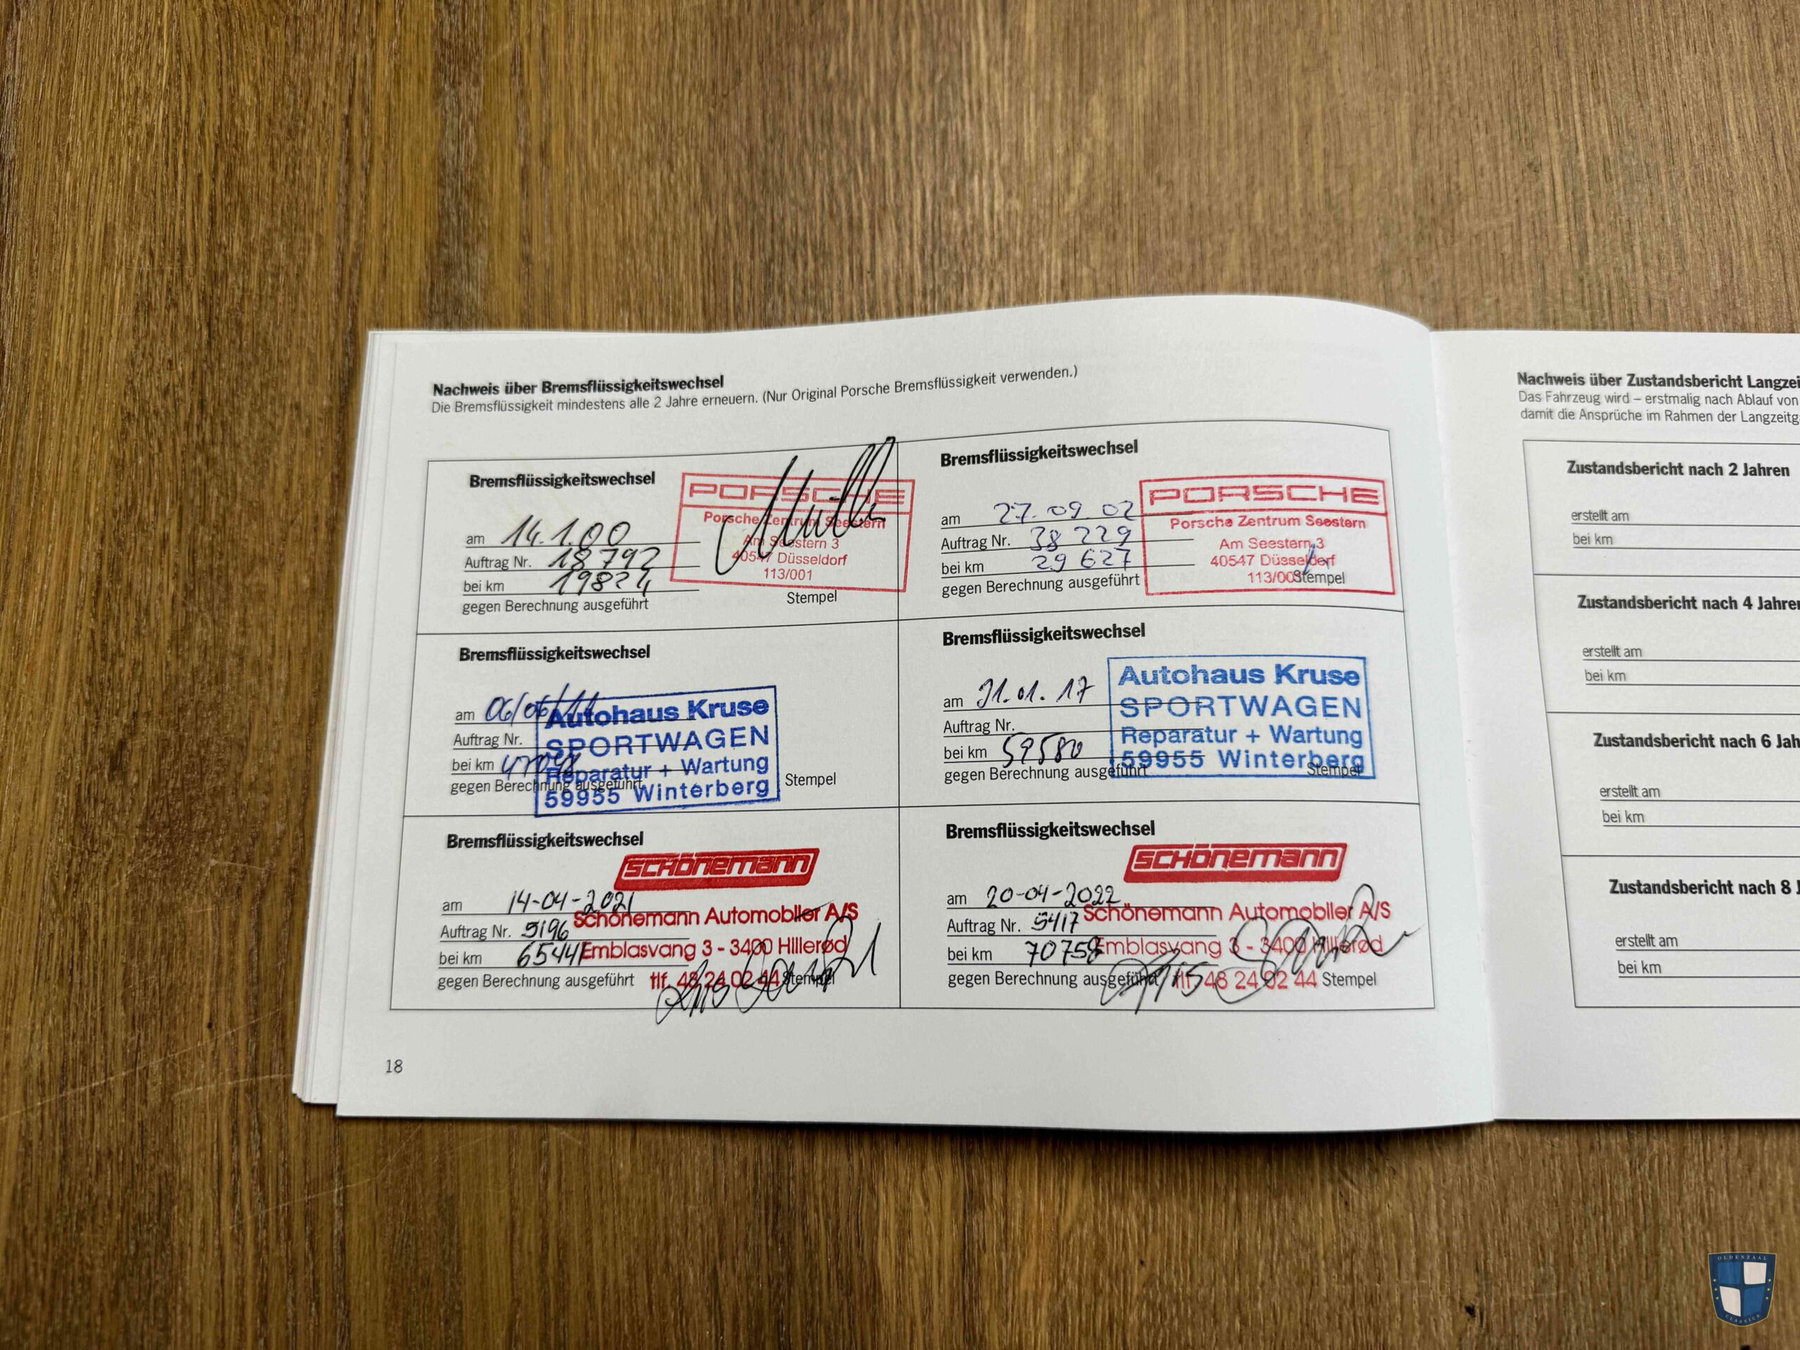 Nachweis über Bremsflüssigkeitswechsel
Die Bremsflüssigkeit mindestens alle 2 Jahre erneuern. (Nur Original Porsche Bremsflüssigkeit verwenden.)
Bremsflüssigkeitswechsel
am 14.1.00
Auftrag Nr. 18792
bei km 19824
gegen Berechnung ausgeführt
PORSCHE
Porsche Zentrum Seestern
Am Seestern 3
40547 Düsseldorf
113/001
Stempel
Bremsflüssigkeitswechsel
am 27.09 02
Auftrag Nr. 38 229
bei km 29 627
gegen Berechnung ausgeführt
PORSCHE
Porsche Zentrum Seestern
Am Seestern 3
40547 Düsseldorf
113/001
Stempel
Bremsflüssigkeitswechsel
am 06/06/11
Auftrag Nr.
bei km
gegen Berechnung ausgeführt
Autohaus Kruse
SPORTWAGEN
Reparatur + Wartung
59955 Winterberg
Stempel
Bremsflüssigkeitswechsel
am 31.01.17
Auftrag Nr.
bei km 59580
gegen Berechnung ausgeführt
Autohaus Kruse
SPORTWAGEN
Reparatur + Wartung
59955 Winterberg
Stempel
Bremsflüssigkeitswechsel
SCHÖNEMANN
am 14-04-2021
Auftrag Nr. 5196
bei km 65441
gegen Berechnung ausgeführt
Schönemann Automobiler A/S
Emblasvang 3 - 3400 Hillerød
tlf. 48 24 02 44
Stempel
Bremsflüssigkeitswechsel
SCHÖNEMANN
am 20-04-2022
Auftrag Nr. 5417
bei km 70758
gegen Berechnung ausgeführt
Schönemann Automobiler A/S
Emblasvang 3 - 3400 Hillerød
tlf. 48 24 02 44
Stempel
18
Nachweis über Zustandsbericht Langzei
Das Fahrzeug wird – erstmalig nach Ablauf von
damit die Ansprüche im Rahmen der Langzeitg
Zustandsbericht nach 2 Jahren
erstellt am
bei km
Zustandsbericht nach 4 Jahren
erstellt am
bei km
Zustandsbericht nach 6 Jah
erstellt am
bei km
Zustandsbericht nach 8 J
erstellt am
bei km
OLDENZAAL
CLASSICS